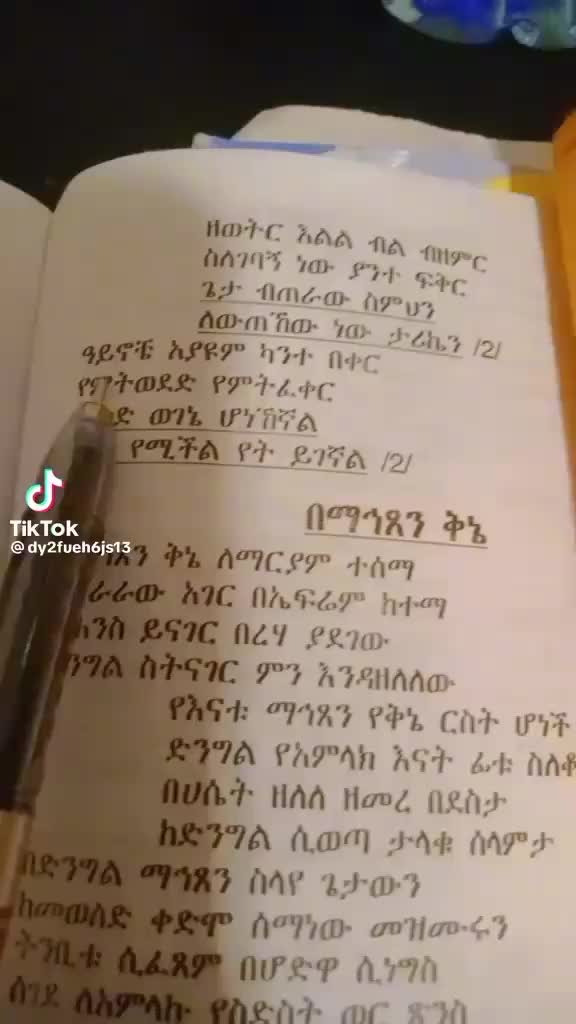 ዘወትር እልል ብል ብዘምር
ስለገባኝ ነው ያንተ ፍቅር
ጌታ ብጠራው ስምህን
ለውጠኸው ነው ታሪኬን /2/
ዓይኖቼ አያዩም ካንተ በቀር
የምትወደድ የምትፈቀር
ወገኔ ሆነኸኛል
የሚችል የት ይገኛል /2/
በማኅጸን ቅኔ
ቅኔ ለማርያም ተሰማ
አገር በኤፍሬም ከተማ
ይናገር በረሃ ያደገው
ስትናገር ምን እንዳዘለለው
የእናቱ ማኅጸን የቅኔ ርስት ሆነች
ድንግል የአምላክ እናት ፊቱ
በሀሴት ዘለለ ዘመረ በደስታ
ከድንግል ሲወጣ ታላቁ ሰላምታ
በድንግል ማኅጸን ስላየ ጌታውን
ከመወለድ ቀድሞ ሰማነው መዝሙሩን
ትንቢቱ ሲፈጸም በሆድዋ ሲነግስ
ሰገደ ለአምላኩ የስድስት ወር ጽንስ
TikTok
@dy2fueh6js13